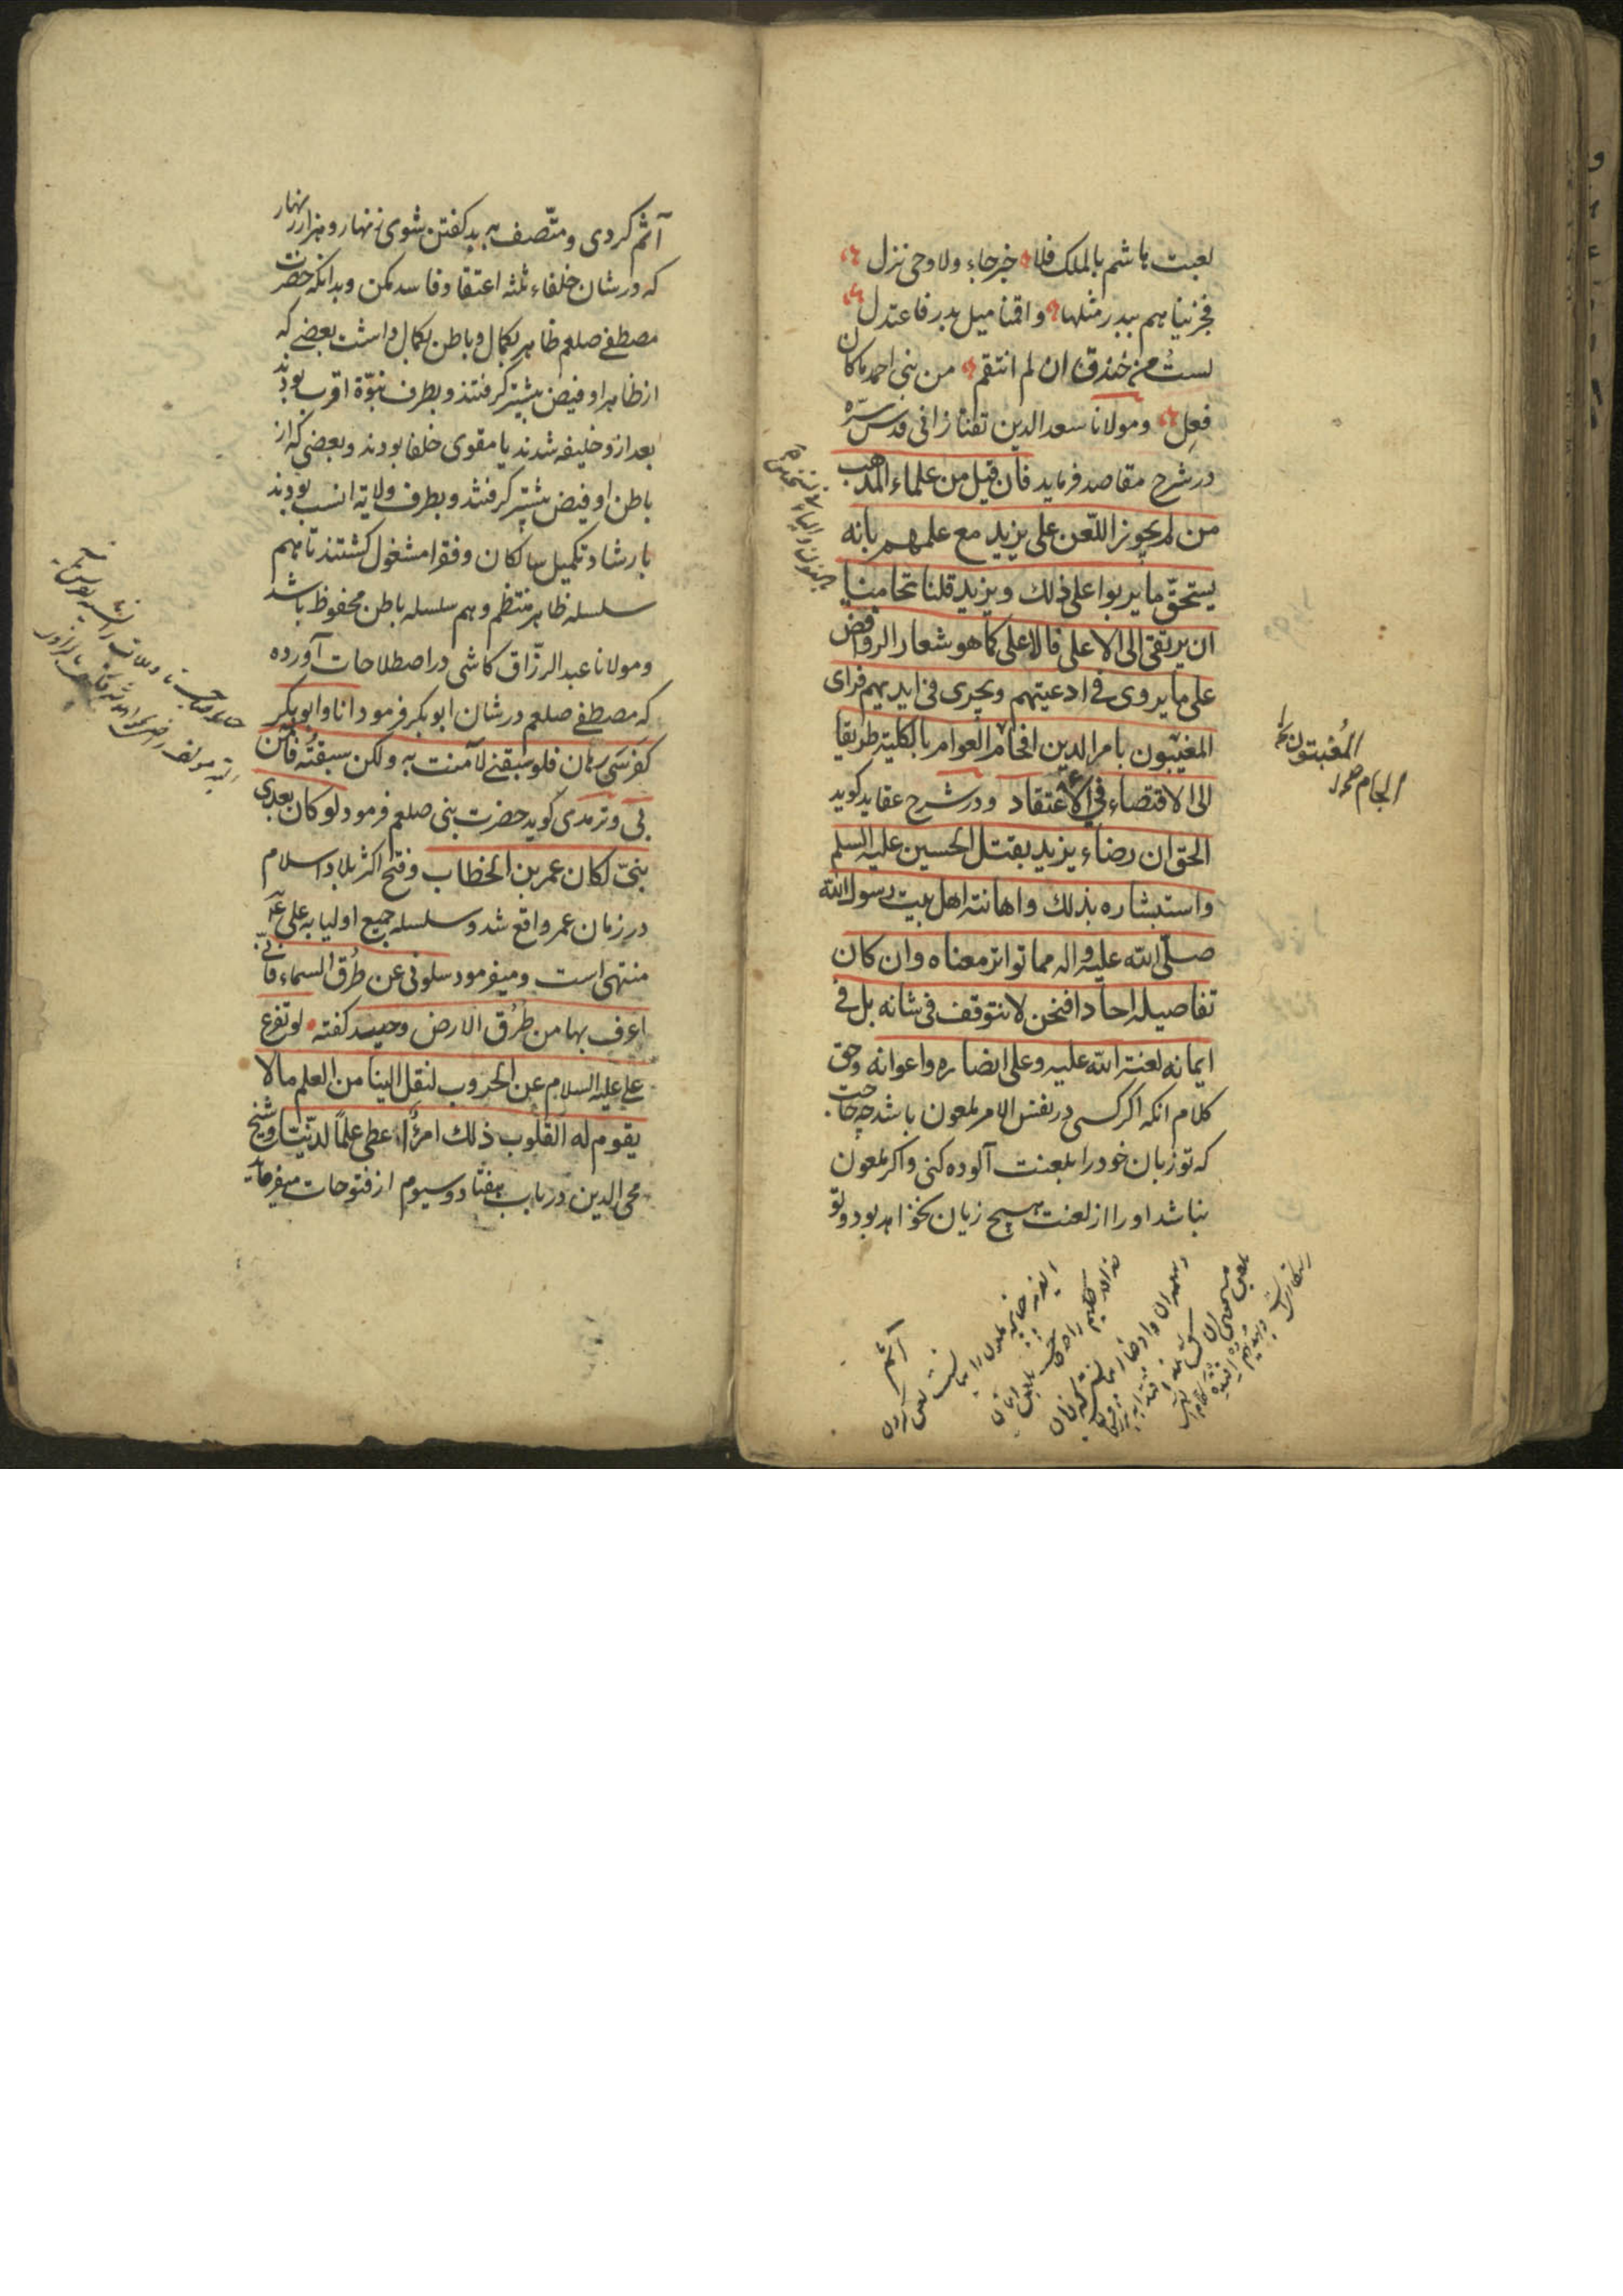 لعبت هاشم بالملک فلا خبر جاء ولا وحی نزل
فجزیناهم ببدر مثلها واقمنا میل بدر فاعتدل
لست من خندق ان لم انتقم من بنی احمد ما کان
فعل ومولانا سعد الدین تفتازانی قدس سره
در شرح مقاصد فرماید فان قیل من علماء المذهب
من لم یجوز اللعن علی یزید مع علمهم بانه
یستحق ما یربوا علی ذلک ویزید قلنا تحامیا
ان یرتقی الی الاعلی فالاعلی کما هو شعار الروافض
علی ما یروی فی ادعیتهم ویجری فی اندیتهم فرای
المغیبون بامر الدین الحام العوام بالکلیة طریقا
الی الاقتصاء فی الاعتقاد ودر شرح عقاید کوید
الحق ان رضاء یزید بقتل الحسین علیه السلم
واستبشاره بذلک واهانته اهل بیت رسول الله
صلی الله علیه واله مما تواتر معناه وان کان
تفاصیله احادا فنحن لا نتوقف فی شانه بل فی
ایمانه لعنة الله علیه وعلی انصاره واعوانه وحق
کلام انکه اکر کسی در نفس الامر ملعون باشد چه حاجت
که تو زبان خود را بلعنت آلوده کنی واکر ملعون
نباشد او را از لعنت هیچ زیان نخواهد بود وتو
المغبتون
الجام
آثم
آثم کردی ومتصف به بد کفتن شوی زنهار وهزار زنهار
که در شان خلفاء ثلثه اعتقاد فاسد نکن وبدانکه حضرت
مصطفی صلعم ظاهر بکمال وباطن بکمال داشت بعضی که
از ظاهر او فیض بیشتر کرفتند وبطرف نبوة اقرب بودند
بعد ازو خلیفه شدند یا مقوی خلفا بودند وبعضی که از
باطن او فیض بیشتر کرفتند وبطرف ولایة انسب بودند
بارشاد وتکمیل سالکان وفقرا مشغول کشتند تا هم
سلسله ظاهر منتظم وهم سلسله باطن محفوظ باشد
ومولانا عبد الرزاق کاشی در اصطلاحات آورده
که مصطفی صلعم در شان ابو بکر فرمود انا وابو بکر
کفرسی رهان فلو سبقنی لآمنت به ولکن سبقته فآمن
بی وترمذی کوید حضرت بنی صلعم فرمود لو کان بعدی
نبی لکان عمر بن الخطاب وفتح اکثر بلاد اسلام
در زمان عمر واقع شد وسلسله جمیع اولیا به علی
منتهی است ومیفرمود سلونی عن طرق السماء فانی
اعرف بها من طرق الارض وجنید کفته لو تفرغ
علی علیه السلام عن الحروب لنقل الینا من العلم ما لا
یقوم له القلوب ذلک امرؤ اعطی علما لدنیا وشیخ
محی الدین در باب هفتاد وسیوم از فتوحات میفرماید